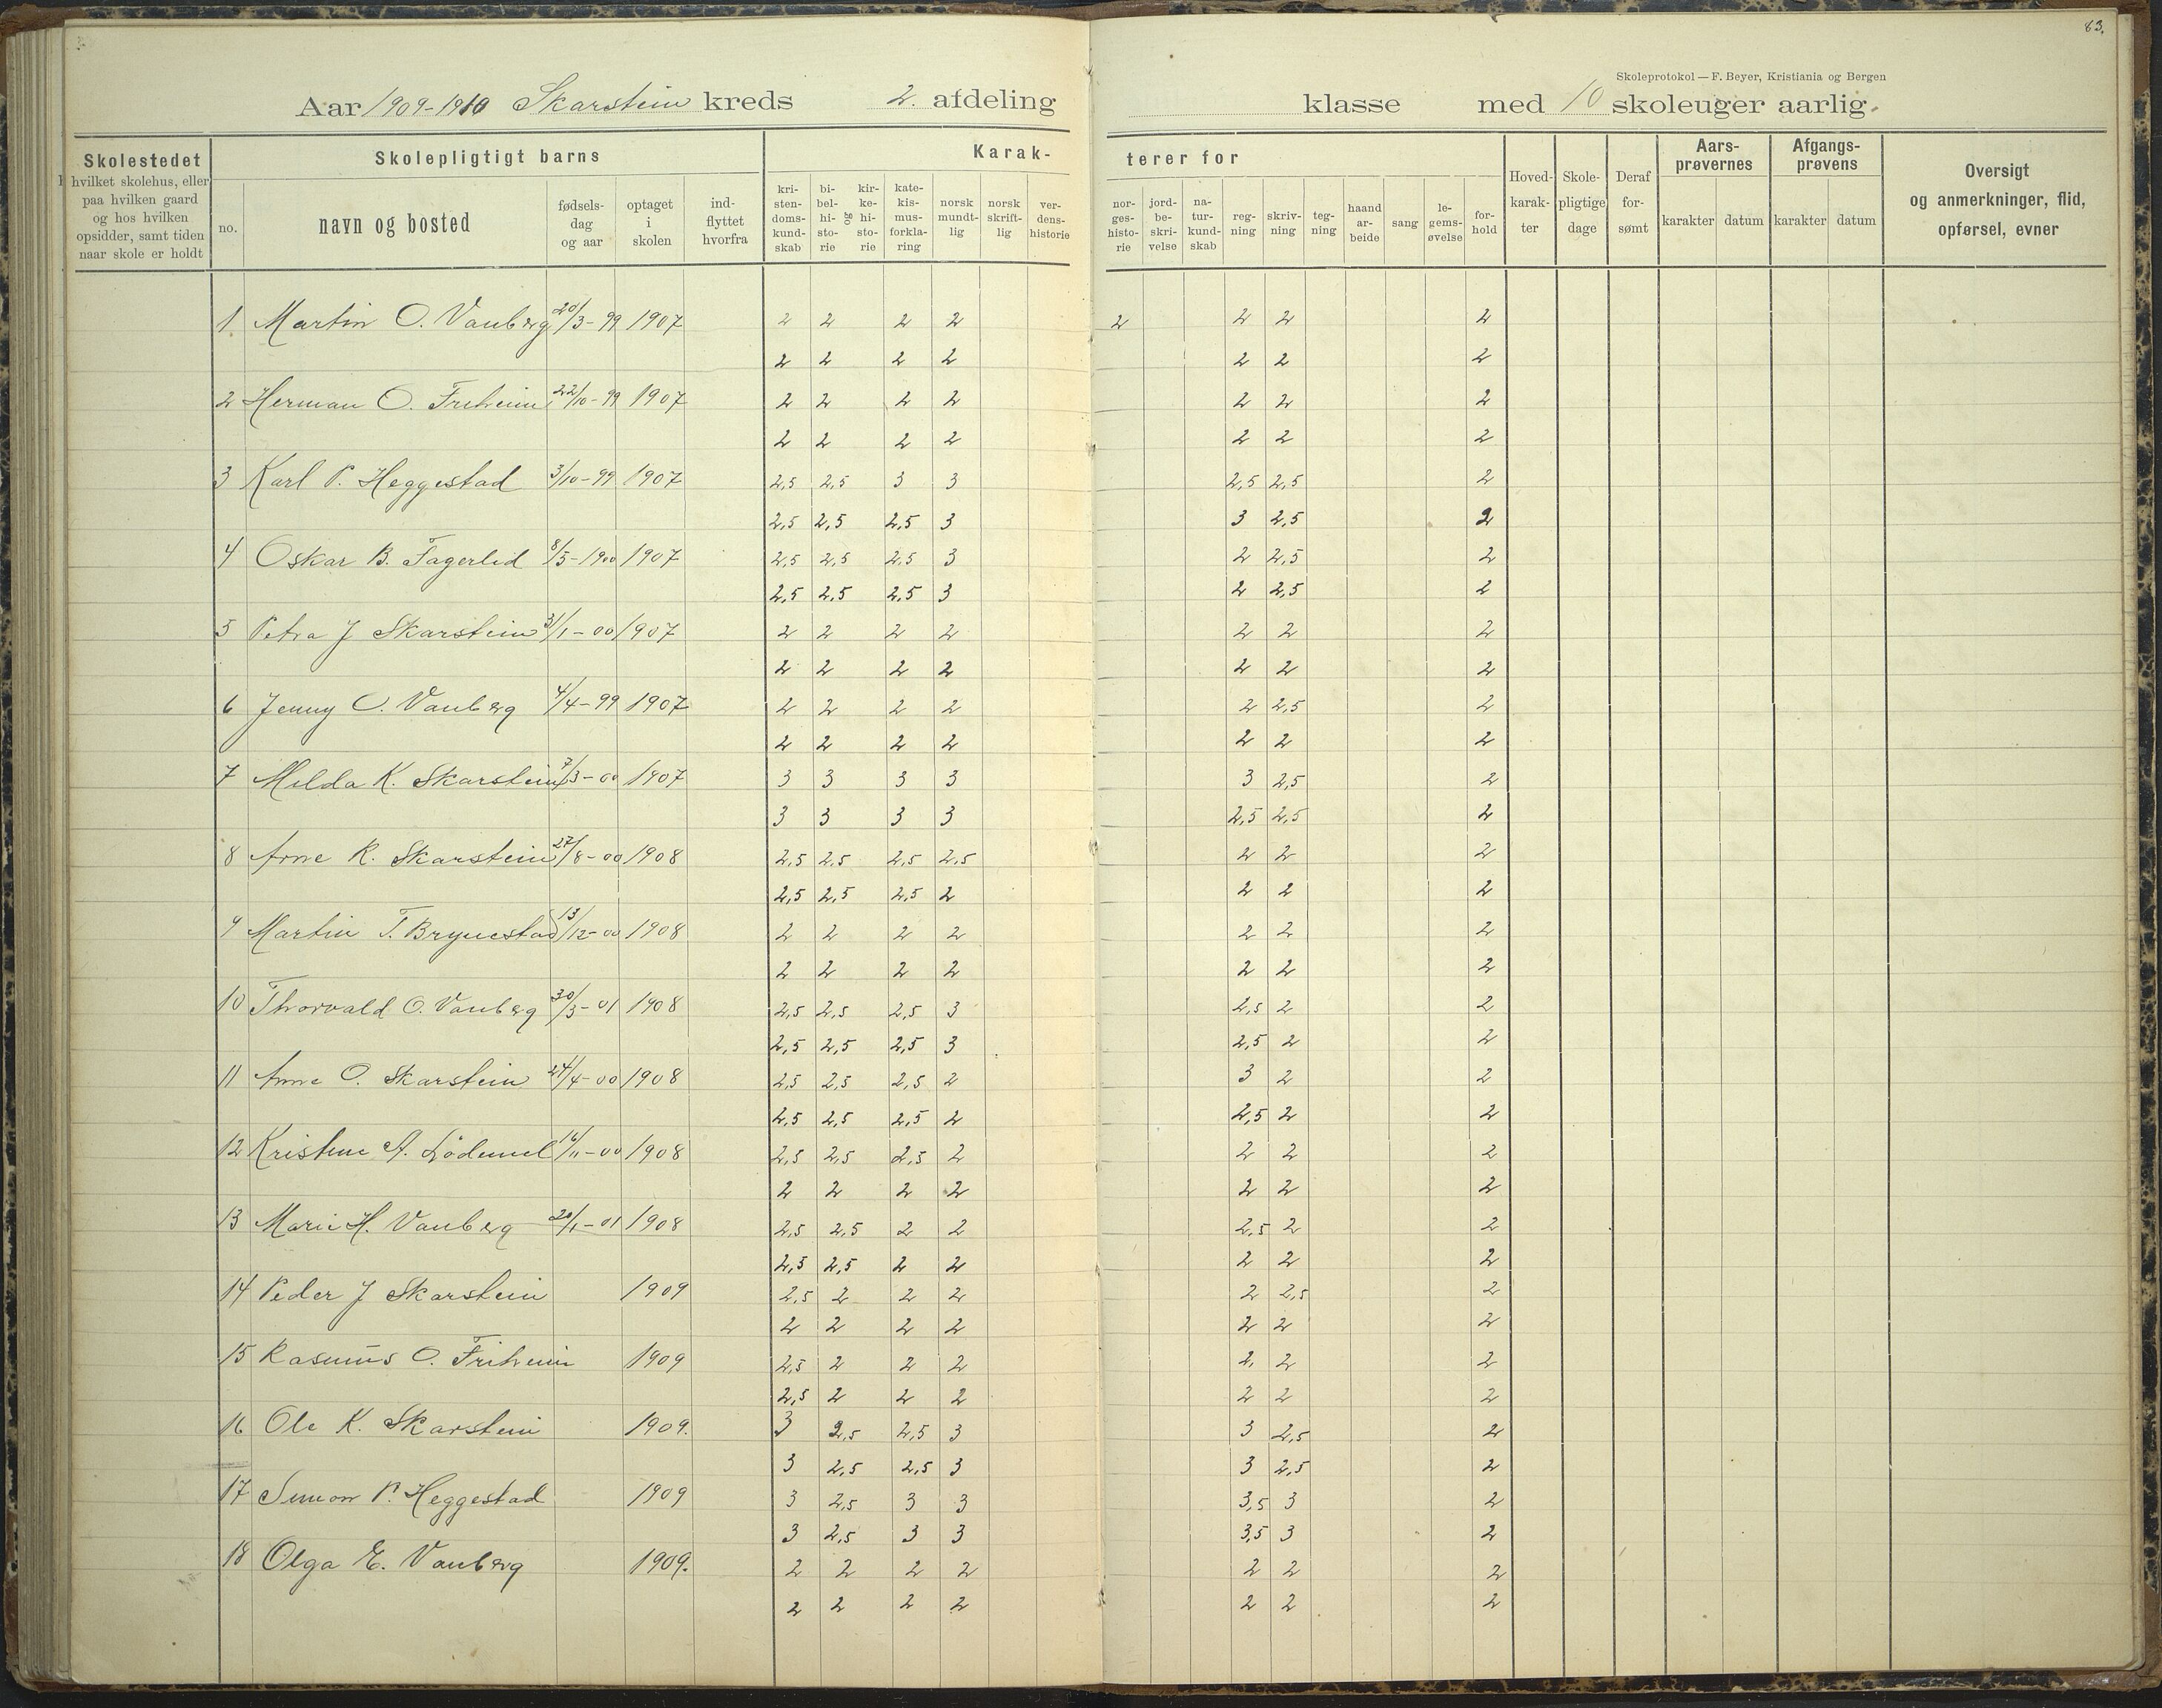 63.
Skoleprotokol — F. Beyer, Kristiania og Bergen
Aar 1909-1910 Skarstein kreds 2. afdeling klasse med 10 skoleuger aarlig.
Skolestedet hvilket skolehus, eller paa hvilken gaard og hos hvilken opsidder, samt tiden naar skole er holdt
Skolepligtigt barns
no. navn og bosted fødsels-dag og aar optaget i skolen ind-flyttet hvorfra
Karak-terer for
kri-sten-doms-kund-skab bi-bel-hi-sto-rie og kir-ke-hi-sto-rie kate-kis-mus-forkla-ring norsk mundt-lig norsk skrift-lig ver-dens-historie nor-ges-histo-rie jord-be-skri-velse na-tur-kund-skab reg-ning skriv-ning teg-ning haand ar-beide sang le-gems-øvelse for-hold
Hoved-karak-ter Skole-pligtige dage Deraf for-sømt
Aars-prøvernes karakter datum
Afgangs-prøvens karakter datum
Oversigt og anmerkninger, flid, opførsel, evner
1 Martin O. Vanberg 20/3-99 1907 2 2 2 2 2 2 2 2
2 2 2 2 2 2 2
2 Herman O. Friheim 22/10-99 1907 2 2 2 2 2 2 2
2 2 2 2 2 2 2
3 Karl P. Heggestad 3/10-99 1907 2,5 2,5 3 3 2,5 2,5 2
2,5 2,5 2,5 3 3 2,5 2
4 Oskar B. Fagerlid 8/5-1900 1907 2,5 2,5 2,5 3 2 2,5 2
2,5 2,5 2,5 3 2 2,5 2
5 Petra J Skarstein 31/1-00 1907 2 2 2 2 2 2 2
2 2 2 2 2 2 2
6 Jenny O. Vanberg 4/4-99 1907 2 2 2 2 2 2,5 2
2 2 2 2 2 2 2
7 Milda K. Skarstein 7/3-00 1907 3 3 3 3 3 2,5 2
3 3 3 3 2,5 2,5 2
8 Arne R. Skarstein 27/8-00 1908 2,5 2,5 2,5 2,5 2 2 2
2,5 2,5 2,5 2 2 2 2
9 Martin T. Brynestad 13/12-00 1908 2 2 2 2 2 2 2
2 2 2 2 2 2 2
10 Thorvald O. Vanberg 30/3-01 1908 2,5 2,5 2,5 3 2,5 2 2
2,5 2,5 2,5 3 2,5 2 2
11 Anne O. Skarstein 24/4-00 1908 2,5 2,5 2,5 2 3 2 2
2,5 2,5 2,5 2 2,5 2 2
12 Kristine A. Lødemel 16/11-00 1908 2,5 2,5 2,5 2 2 2 2
2 2 2 2 2 2 2
13 Marie H. Vanberg 20/1-01 1908 2,5 2,5 2 2 2,5 2 2
2,5 2,5 2 2 2 2 2
14 Peder J Skarstein 1909 2,5 2 2 2 2 2,5 2
2 2 2 2 2 2 2
15 Rasmus O. Friheim 1909 2,5 2 2 2 2, 2 2
2,5 2 2 2 2 2 2
16 Ole K. Skarstein 1909. 3 2,5 2,5 3 3 2,5 2
3 2,5 2,5 3 3 2,5 2
17 Simon P. Heggestad 1909 3 2,5 3 3 3,5 3 2
3 2,5 3 3 3,5 3 2
18 Olga E. Vanberg 1909. 2 2 2 2 2 2 2
2 2 2 2 2 2 2